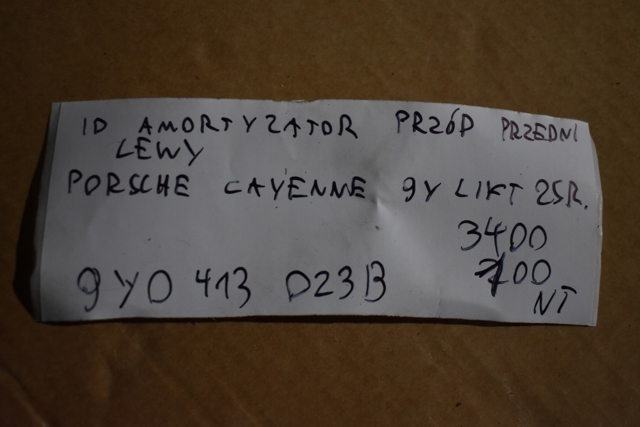 ID AMORTYZATOR PRZÓD PRZEDNI
LEWY
PORSCHE CAYENNE 9Y LIFT 25R.
3400
9Y0 413 023B
NT